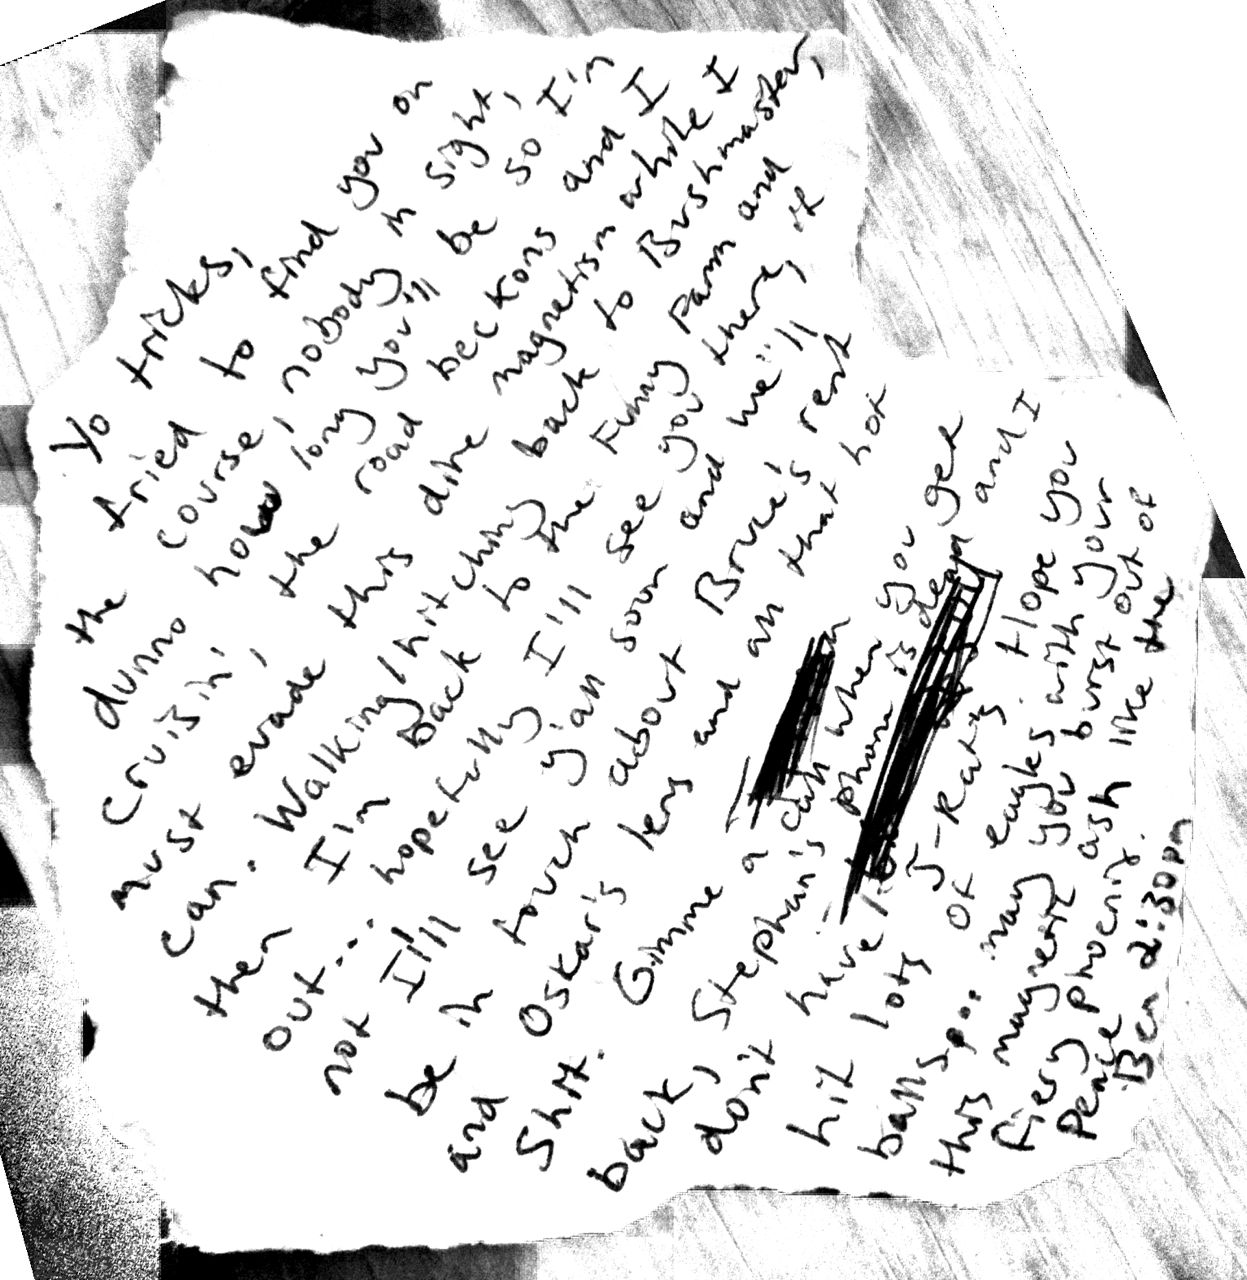 Yo tricks,
tried to find you on
the course, nobody in sight,
dunno how long you'll be so I'm
cruisin', the road beckons and I
must evade this dire magnetism while I
can. Walking/hitching back to Bushmaster,
then I'm back to the Funny Farm and
out... hopefully I'll see you there, if
not I'll see y'all soon and we'll
be in touch about Bruce's rent
and Oskar's lens and all that hot
shit. Gimme a call when you get
back, Stephan's phone is dead and I
don't have J-Rat's. Hope you
hit lots of eagles with your
balls, may you burst out of
this magnetic ash like the
fiery phoenix.
Peace
Ben 2:30pm